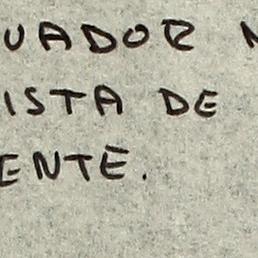 UADOR
ISTA DE
ENTE.